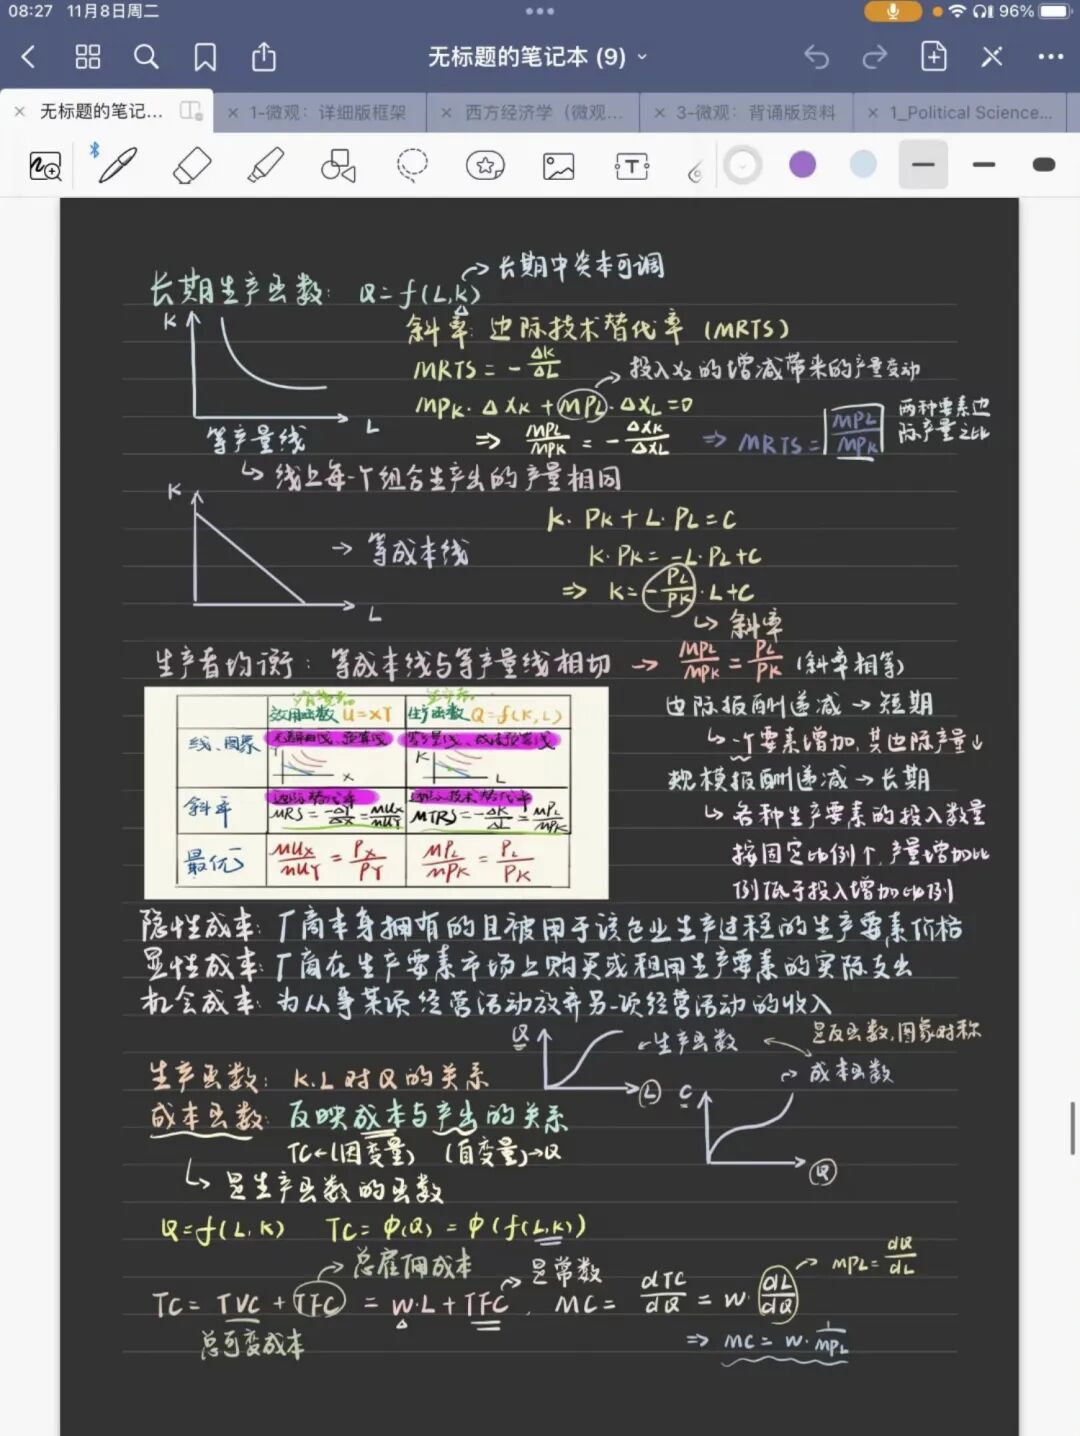 08:27 11月8日周二
96%
无标题的笔记本 (9)
无标题的笔记...
1-微观：详细版框架
西方经济学（微观...
3-微观：背诵版资料
1_Political Science...
→长期中资本可调
长期生产函数： Q=f(L,K)
K
L
等产量线
斜率：边际技术替代率 (MRTS)
MRTS = -ΔK/ΔL
→投入X2的增减带来的产量变动
MPK·ΔXK + MPL·ΔXL=0
⇒ MPL/MPK = -ΔXK/ΔXL ⇒ MRTS = |MPL/MPK|
两种要素边
际产量之比
↳ 线上每一个组合生产出的产量相同
K
L
→ 等成本线
K·PK+L·PL=C
K·PK= -L·PL+C
⇒ K=-PL/PK·L+C
↳ 斜率
生产者均衡：等成本线与等产量线相切 → MPL/MPK = PL/PK (斜率相等)
效用函数 U=XY
生产函数 Q=f(K,L)
线、图象
无差异曲线、预算线
X
K
L
斜率
边际替代率
MRS = -ΔY/ΔX = MUX/MUY
边际技术替代率
MTRS = -ΔK/ΔL = MPL/MPK
最优
MUX/MUY = PX/PY
MPL/MPK = PL/PK
边际报酬递减→短期
↳一个要素增加，其边际产量↓
规模报酬递减→长期
↳ 各种生产要素的投入数量
按固定比例个，产量增加比
例低于投入增加比例
隐性成本：厂商本身拥有的且被用于该企业生产过程的生产要素价格
显性成本：厂商在生产要素市场上购买或租用生产要素的实际支出
机会成本：为从事某项经营活动放弃另一项经营活动的收入
Q
L
←生产函数
是反函数，图象对称
→成本函数
C
Q
生产函数：K.L对Q的关系
成本函数：反映成本与产出的关系
TC←(因变量) (自变量)→Q
↳ 是生产函数的函数
Q=f(L,K) TC= φ(Q) = φ(f(L,K))
→总雇佣成本
→是常数
→ MPL=dQ/dL
TC= TVC + TFC = w·L + TFC , MC= dTC/dQ = w·dL/dQ
总可变成本
⇒ MC= w·1/MPL